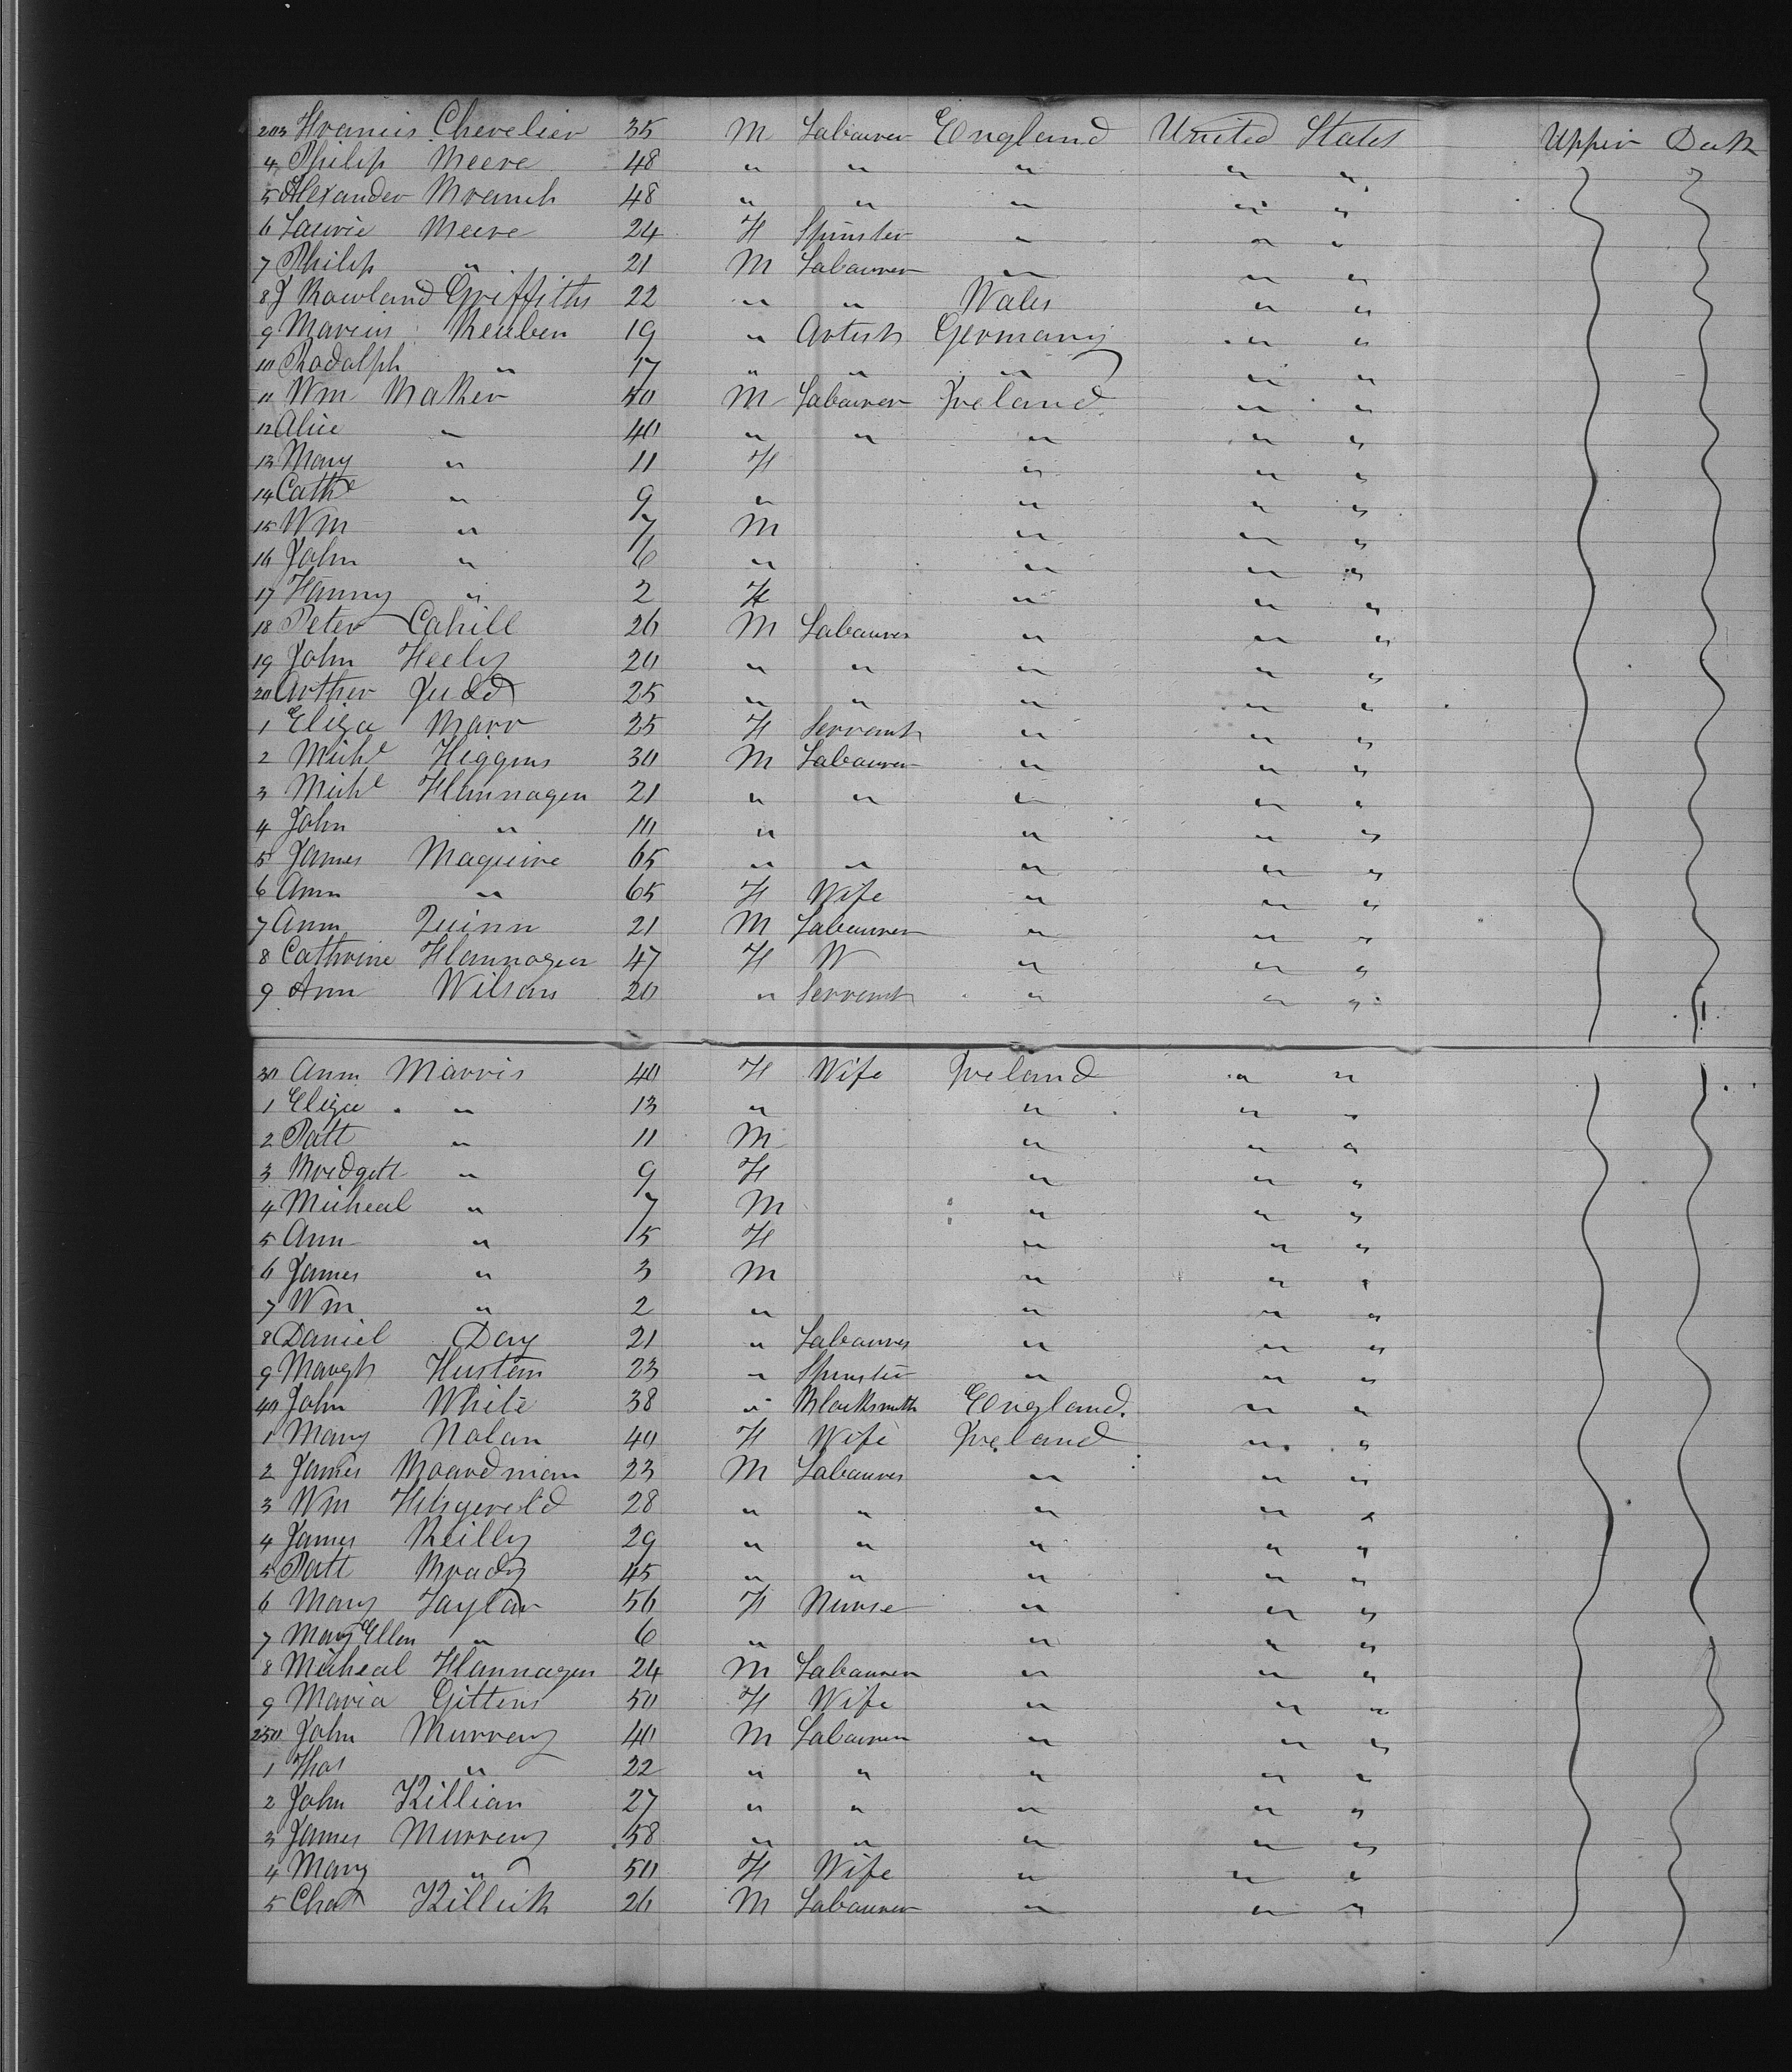 203 Francis Chevelier 35 M Labourer England United States Upper Deck
4 Philip Meere 48 " " " " "
5 Alexander Branch 48 " " " " "
6 Laurie Meere 24 F Spinster " " "
7 Philip " 21 M Labourer " " "
8 J Rowland Griffiths 22 " " Wales " "
9 Reuben 19 " Artist Germany " "
10 Rodolph " 17 " " " " "
11 Wm Baker 40 M Labourer Ireland " "
12 Alice " 40 " " " " "
13 Mary " 11 F " " "
14 Cathe " 9 " " " "
15 Wm " 7 M " " "
16 John " 6 " " " "
17 Fanny " 2 F " " "
18 Peter Cahill 26 M Labourer " " "
19 John Feely 20 " " " " "
20 Arthur Judd 25 " " " " "
1 Eliza Marr 25 F Servant " " "
2 Michl Higgins 30 M Labourer " " "
3 Michl Flannagen 21 " " " " "
4 John " 10 " " " "
5 James Maguire 65 " " " " "
6 Ann " 65 F Wife " " "
7 Ann Quinn 21 M Labourer " " "
8 Cathrine Flannagen 47 F W " " "
9 Ann Wilson 20 " Servant " " "
30 Ann Marris 40 F Wife Ireland " "
1 Eliza " 13 " " " "
2 Patt " 11 M " " "
3 Bredgett " 9 F " " "
4 Micheal " 7 M " " "
5 Ann " 5 F " " "
6 James " 3 M " " "
7 Wm " 2 " " " "
8 Daniel Day 21 " Labourer " " "
9 Margt Huston 23 " Spinster " " "
40 John White 38 " Blacksmith England. " "
1 Mary Nolan 40 F Wife Ireland " "
2 James Boardman 23 M Labourer " " "
3 Wm Fitzgerald 28 " " " " "
4 James Reilly 29 " " " " "
5 Patt Brady 45 " " " " "
6 Mary Taylor 56 F Nurse " " "
7 Mary Ellen " 6 " " " "
8 Micheal Flannagen 24 M Labourer " " "
9 Maria Gittens 50 F Wife " " "
250 John Murrey 40 M Labourer " " "
1 Thos " 22 " " " " "
2 John Killian 27 " " " " "
3 James Murrey 58 " " " " "
4 Mary " 50 F Wife " " "
5 Chas Killick 26 M Labourer " " "